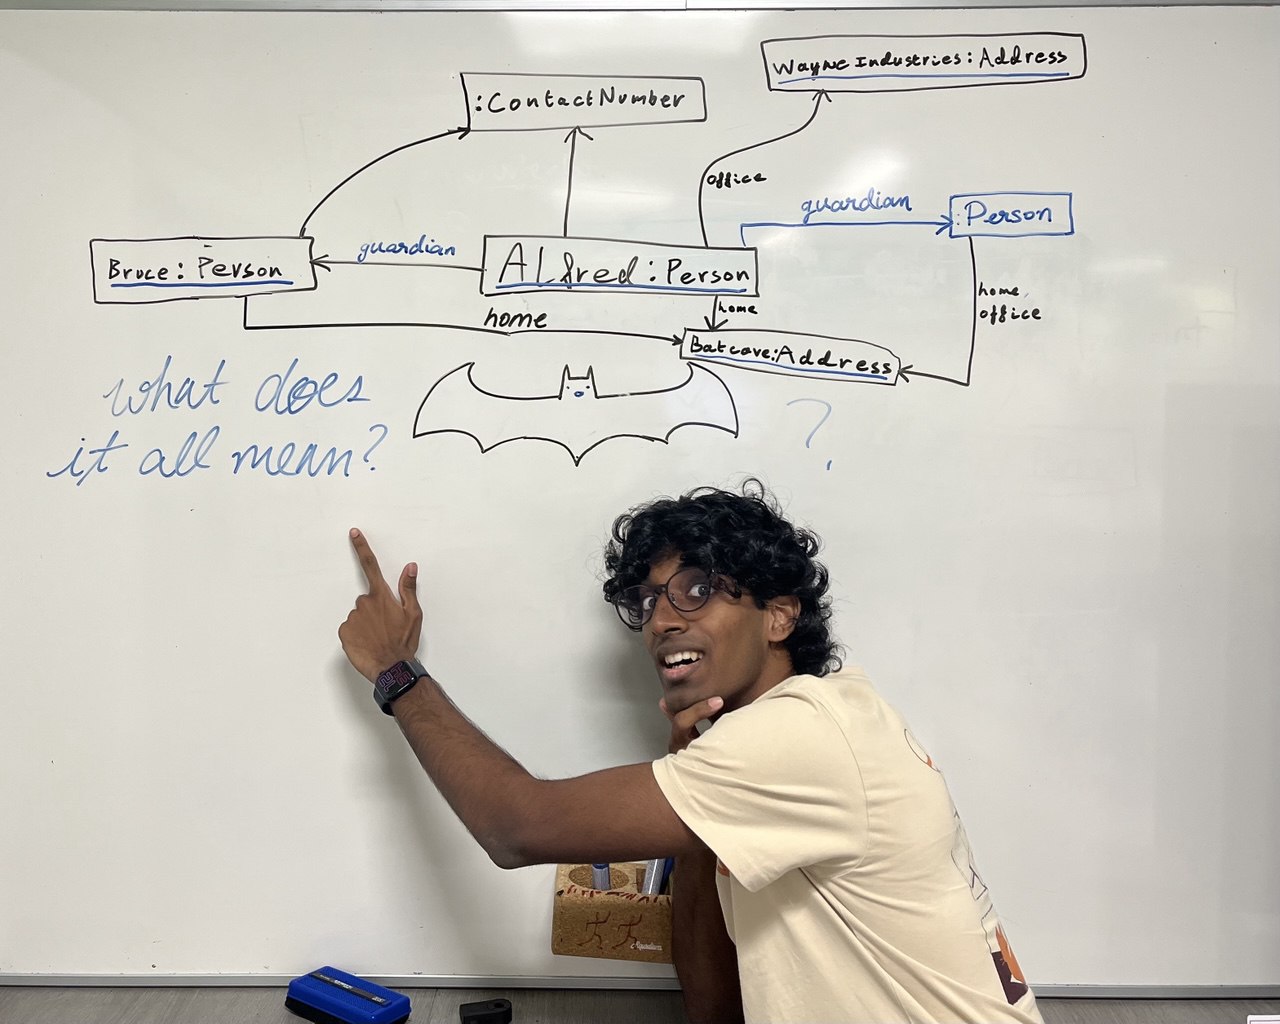 Wayne Industries: Address
:ContactNumber
office
guardian
:Person
guardian
Bruce: Person
ALfred: Person
home,
office
home
home
Batcave:Address
what does
it all mean?
?